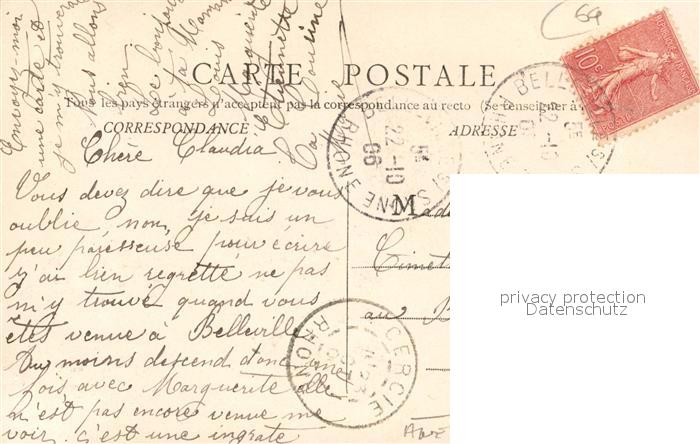 CARTE POSTALE
Tous les pays étrangers n'acceptent pas la correspondance au recto (Se renseigner à
CORRESPONDANCE
ADRESSE
Chère Claudia
Vous devez dire que je vous
oublie, non, je suis un
peu paresseuse pour écrire
j'ai bien regretté ne pas
m'y trouvé quand vous
êtes venue à Belleville
Au moins descend donc une
fois avec Marguerite elle
n'est pas encore venue me
voir c'est une ingrate
Envoyez-moi
une carte et
je m'y trouverai
Nous allons
bien
Le bonjour
à la Maman
Louis
Marguerite
Votre
Cousine
M
Mada
au B
BELLEV
RHONE
22-10
06
RHONE
22-10
CERCIE
RHONE
10c
POSTES
69
privacy protection
Datenschutz